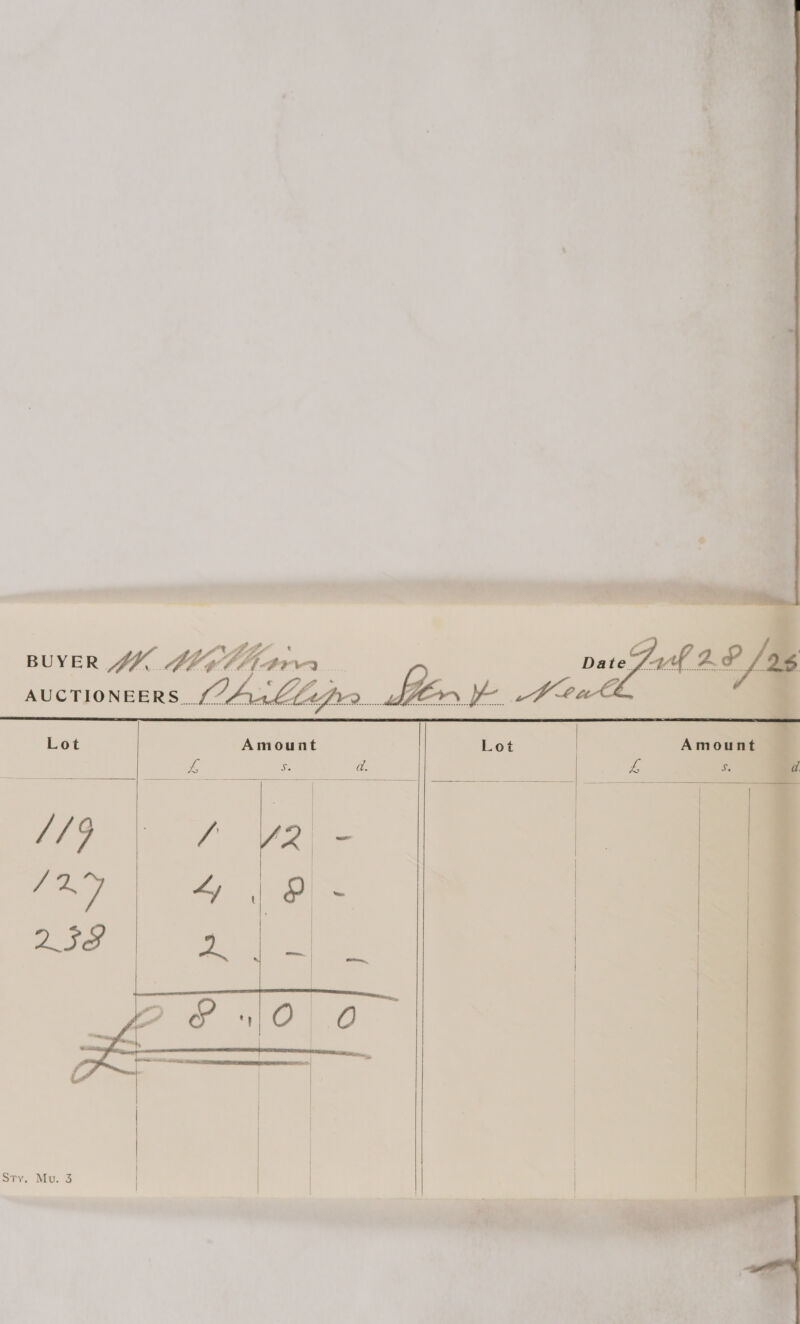 BUYER W. Williams Date Jul 28/26
AUCTIONEERS Phillips Son & Neale
Lot Amount Lot Amount
£ s. d. £ s. d.
119 1 12 -
127 4 , 8 -
238 2 . - -
£ 8 " 0 0
Sty. Mu. 3